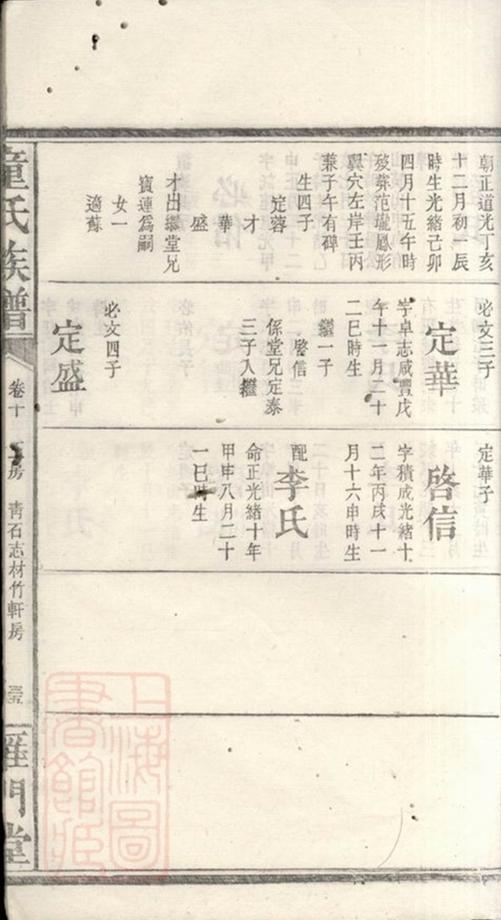 朝正道光丁亥
十二月初一辰
時生光緒己卯
四月十五午時
歿葬范壠鳳形
翼穴左岸壬丙
兼子午有碑
生四子
定蓉
才
華
盛
才出繼堂兄
寶蓮爲嗣
女一
適蘇
必文三子
定華
字卓志咸豐戊
午十一月二十
二巳時生
繼一子
啓信
係堂兄定泰
三子入繼
必文四子
定盛
定華子
啓信
字積成光緒十
二年丙戌十一
月十六申時生
配
李氏
命正光緒十年
甲申八月二十
一巳時生
童氏族譜
卷十
房 青石志材竹軒房
雁門堂
上海圖
書館藏